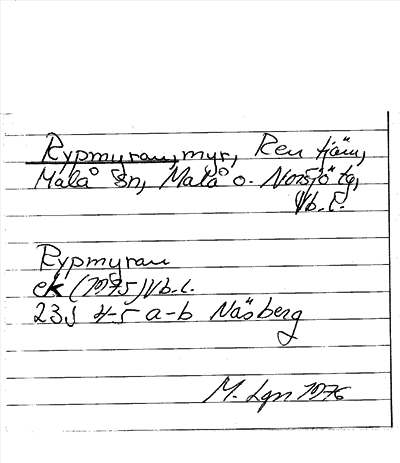 Rypmyran, myr, Ren tjärn,
Malå sn, Malå o. Norsjö tg,
Vb.l.
Rypmyran
ek (1975) Vb.l.
23J 4-5 a-b Näsberg
M. Lgn 1976